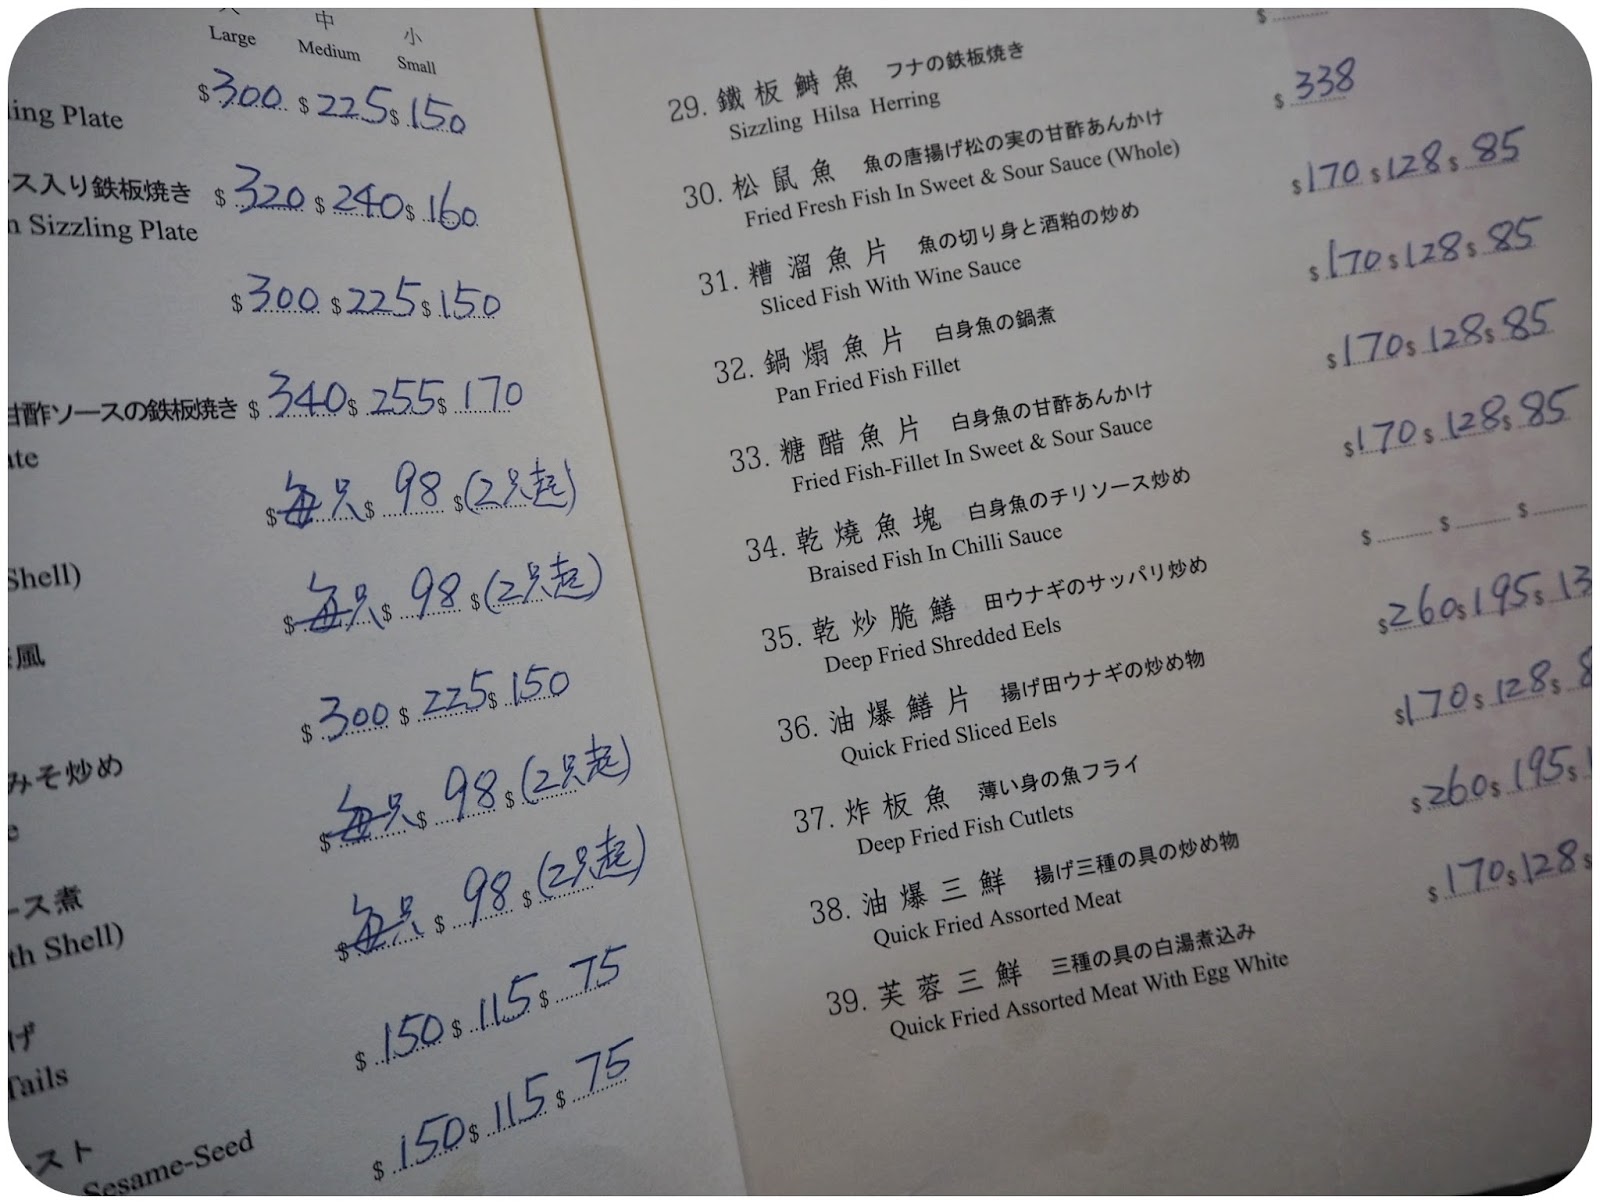 大 中 小
Large Medium Small
$300 $225 $150
ing Plate
ス入り鉄板焼き $320 $240 $160
n Sizzling Plate
$300 $225 $150
甘酢ソースの鉄板焼き $340 $255 $170
ate
$每只 $98 $(2只起)
Shell)
$每只 $98 $(2只起)
風
$300 $225 $150
みそ炒め
e
$每只 $98 $(2只起)
ース煮
th Shell)
$每只 $98 $(2只起)
げ
$150 $115 $75
Tails
スト
$150 $115 $75
Sesame-Seed
29. 鐵板鰣魚 フナの鉄板焼き $
Sizzling Hilsa Herring
30. 松鼠魚 魚の唐揚げ松の実の甘酢あんかけ $338
Fried Fresh Fish In Sweet & Sour Sauce (Whole)
31. 糟溜魚片 魚の切り身と酒粕の炒め $170 $128 $85
Sliced Fish With Wine Sauce
32. 鍋塌魚片 白身魚の鍋煮 $170 $128 $85
Pan Fried Fish Fillet
33. 糖醋魚片 白身魚の甘酢あんかけ $170 $128 $85
Fried Fish-Fillet In Sweet & Sour Sauce
34. 乾燒魚塊 白身魚のチリソース炒め $170 $128 $85
Braised Fish In Chilli Sauce
35. 乾炒脆鱔 田ウナギのサッパリ炒め $ $ $
Deep Fried Shredded Eels
36. 油爆鱔片 揚げ田ウナギの炒め物 $260 $195 $13
Quick Fried Sliced Eels
37. 炸板魚 薄い身の魚フライ $170 $128 $8
Deep Fried Fish Cutlets
38. 油爆三鮮 揚げ三種の具の炒め物 $260 $195 $1
Quick Fried Assorted Meat
39. 芙蓉三鮮 三種の具の白湯煮込み $170 $128 $
Quick Fried Assorted Meat With Egg White